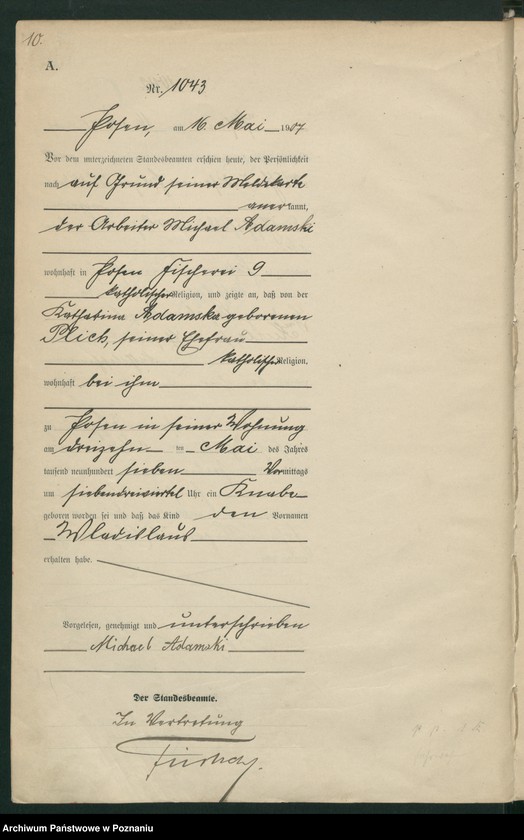 10.
A.
Nr. 1043
Posen, am 16. Mai 1907
Vor dem unterzeichneten Standesbeamten erschien heute, der Persönlichkeit
nach auf Grund seiner Meldekarte
anerkannt,
der Arbeiter Michael Adamski
wohnhaft in Posen Fischerei 9
katholischer Religion, und zeigte an, daß von der
Katharina Adamska geborenen
Plich, seiner Ehefrau
katholischer Religion,
wohnhaft bei ihm
zu Posen in seiner Wohnung
am dreizehnten Mai des Jahres
tausend neunhundert sieben Vormittags
um siebendreiviertel Uhr ein Knabe
geboren worden sei und daß das Kind den Vornamen
Wladislaus
erhalten habe.
Vorgelesen, genehmigt und unterschrieben
Michael Adamski
Der Standesbeamte.
In Vertretung
Archiwum Państwowe w Poznaniu